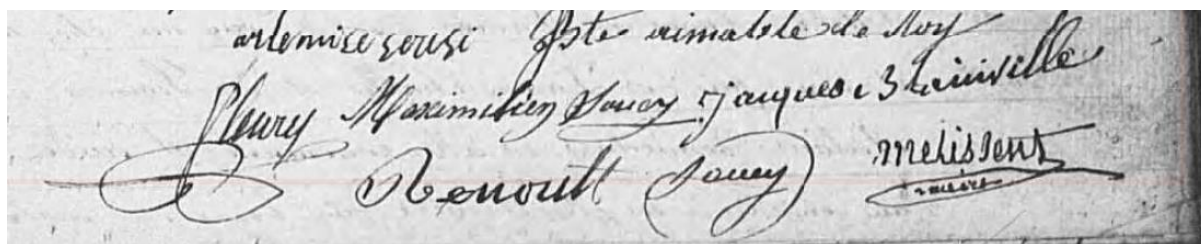 artemise sousi Bte aimable de Roy
fleury Maximilien Soucy jacques Blainville
Renoult Soucy melissent
maire